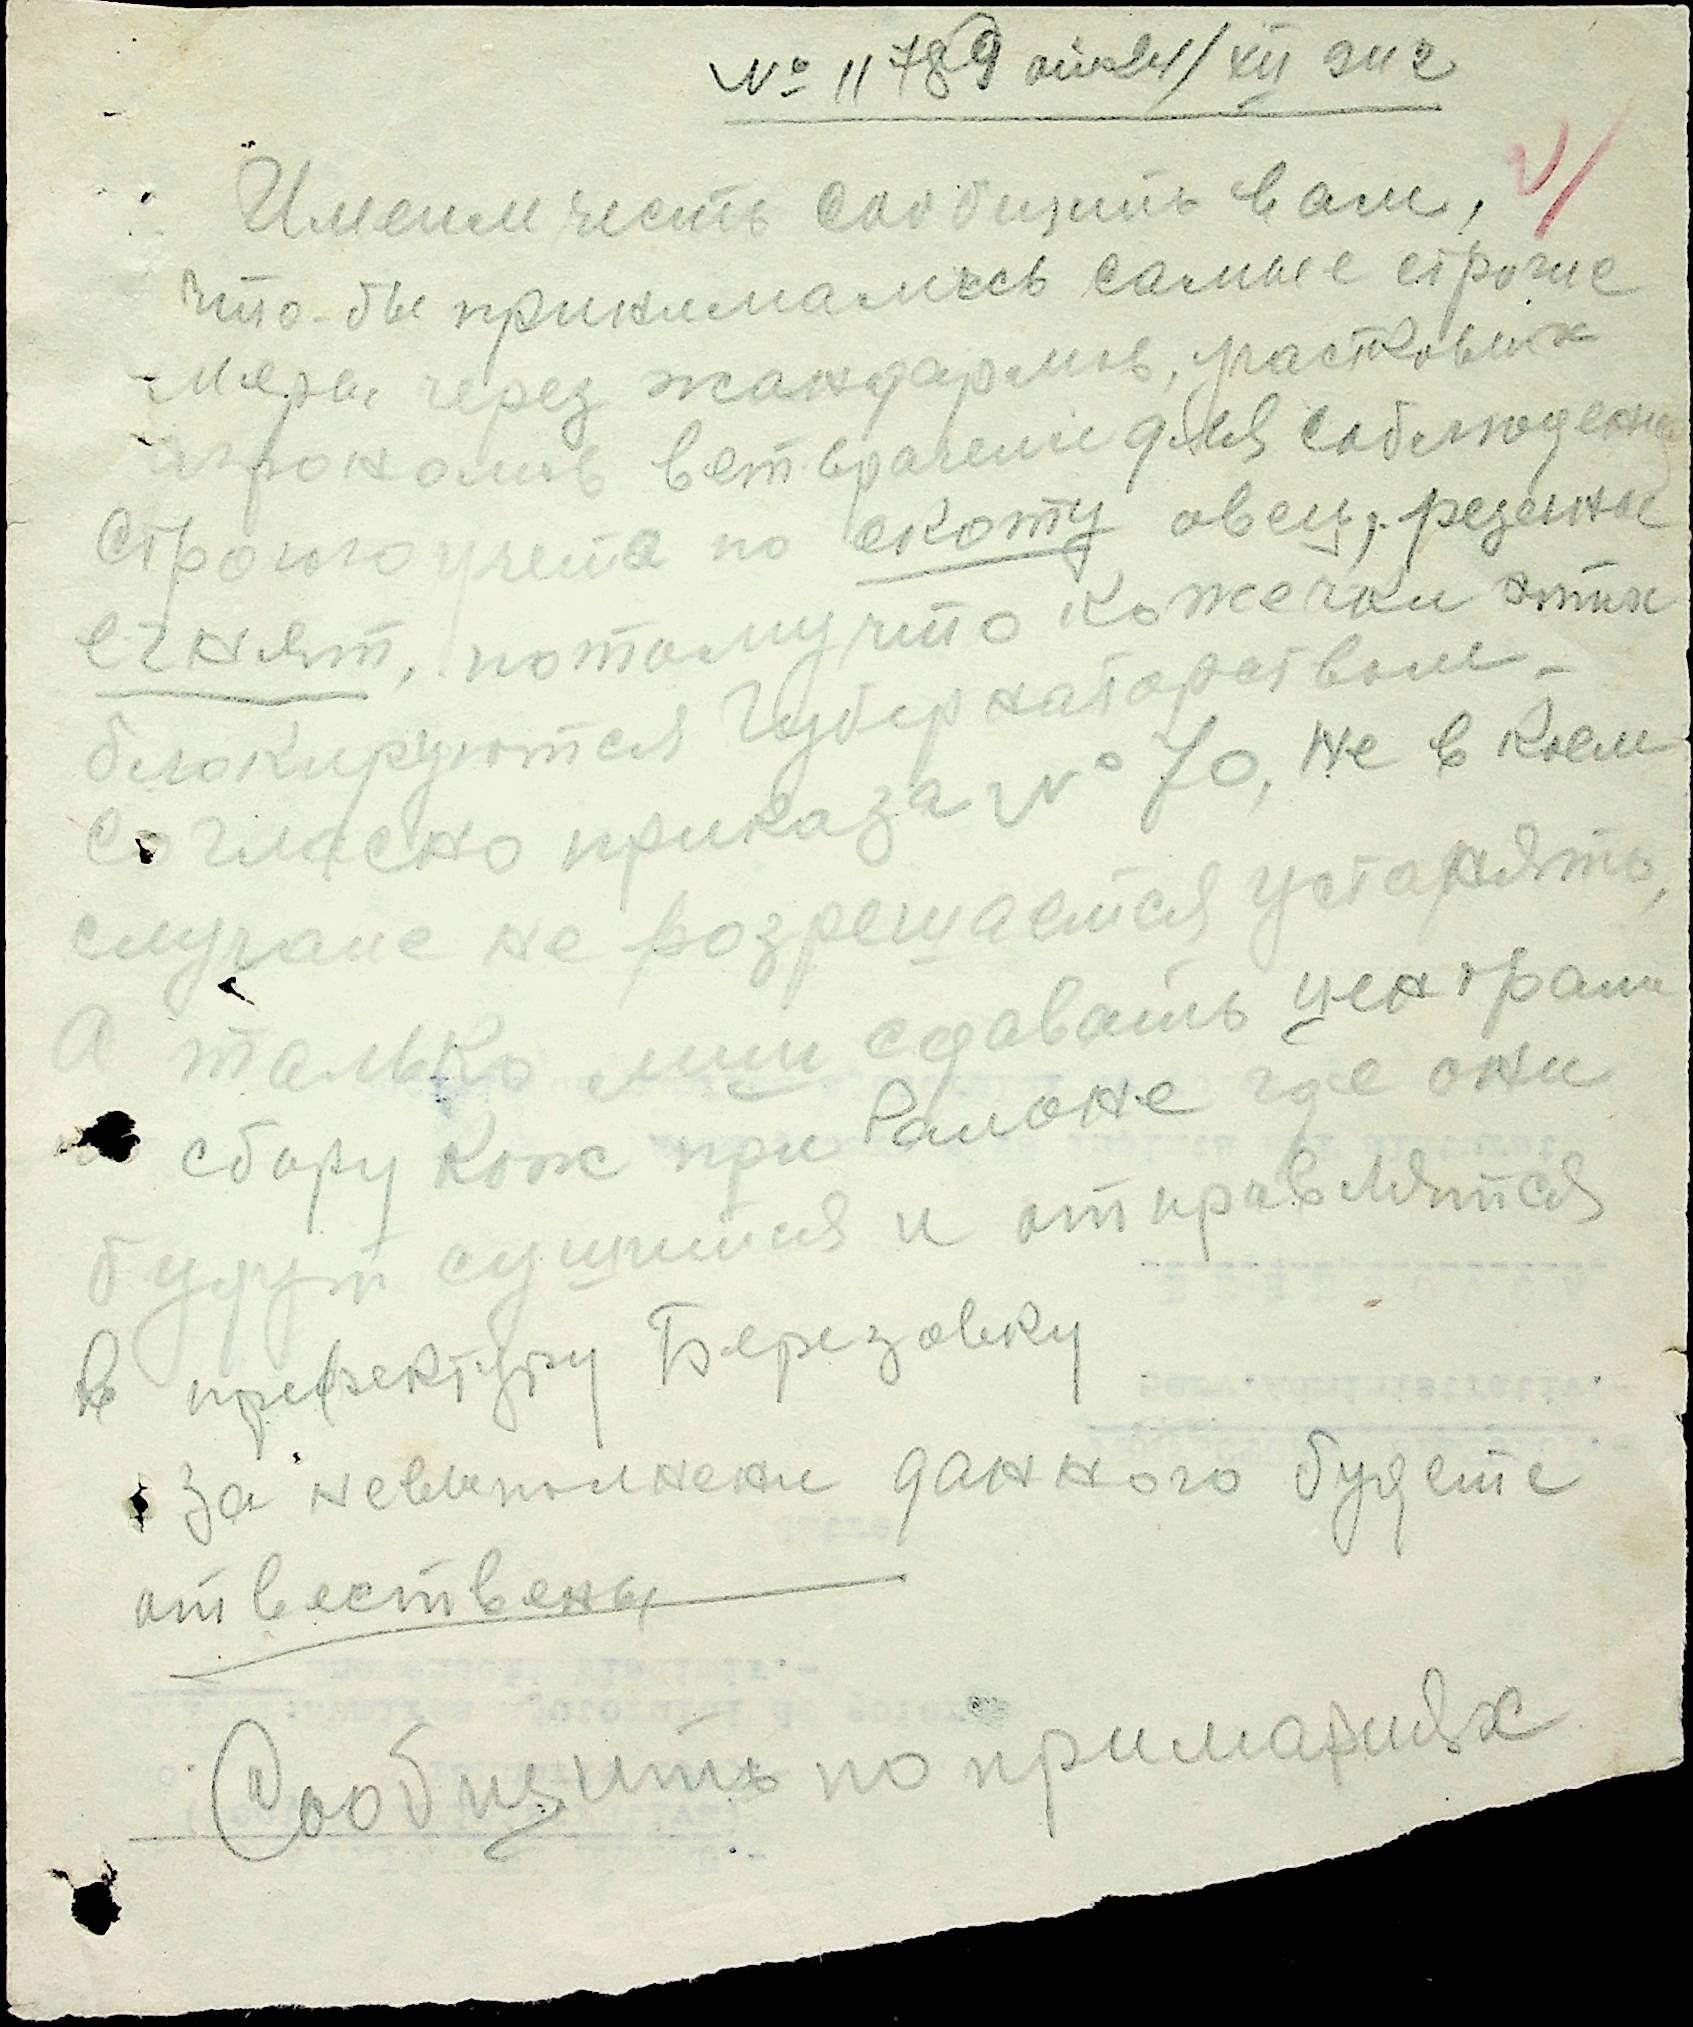 № 11789 от 24/XII 942
Имеем честь сообщить вам,
что-бы принимались самые строгие
меры через жандармов, участковых
агрономов ветврачеми для соблюдения
строгого учета по скоту овец, резаные
егнят, потому что кожечки этих
блокируются Губернаторством-
согласно приказа № 70, не в коем
случаие не розрешается устаранять,
а только лиш сдавать централи
по сбору кож при Раионе где они
будут сушится и отправлятся
в префектуру Березовку
За невыполнени данного будете
отвествены
Сообщить по примариях